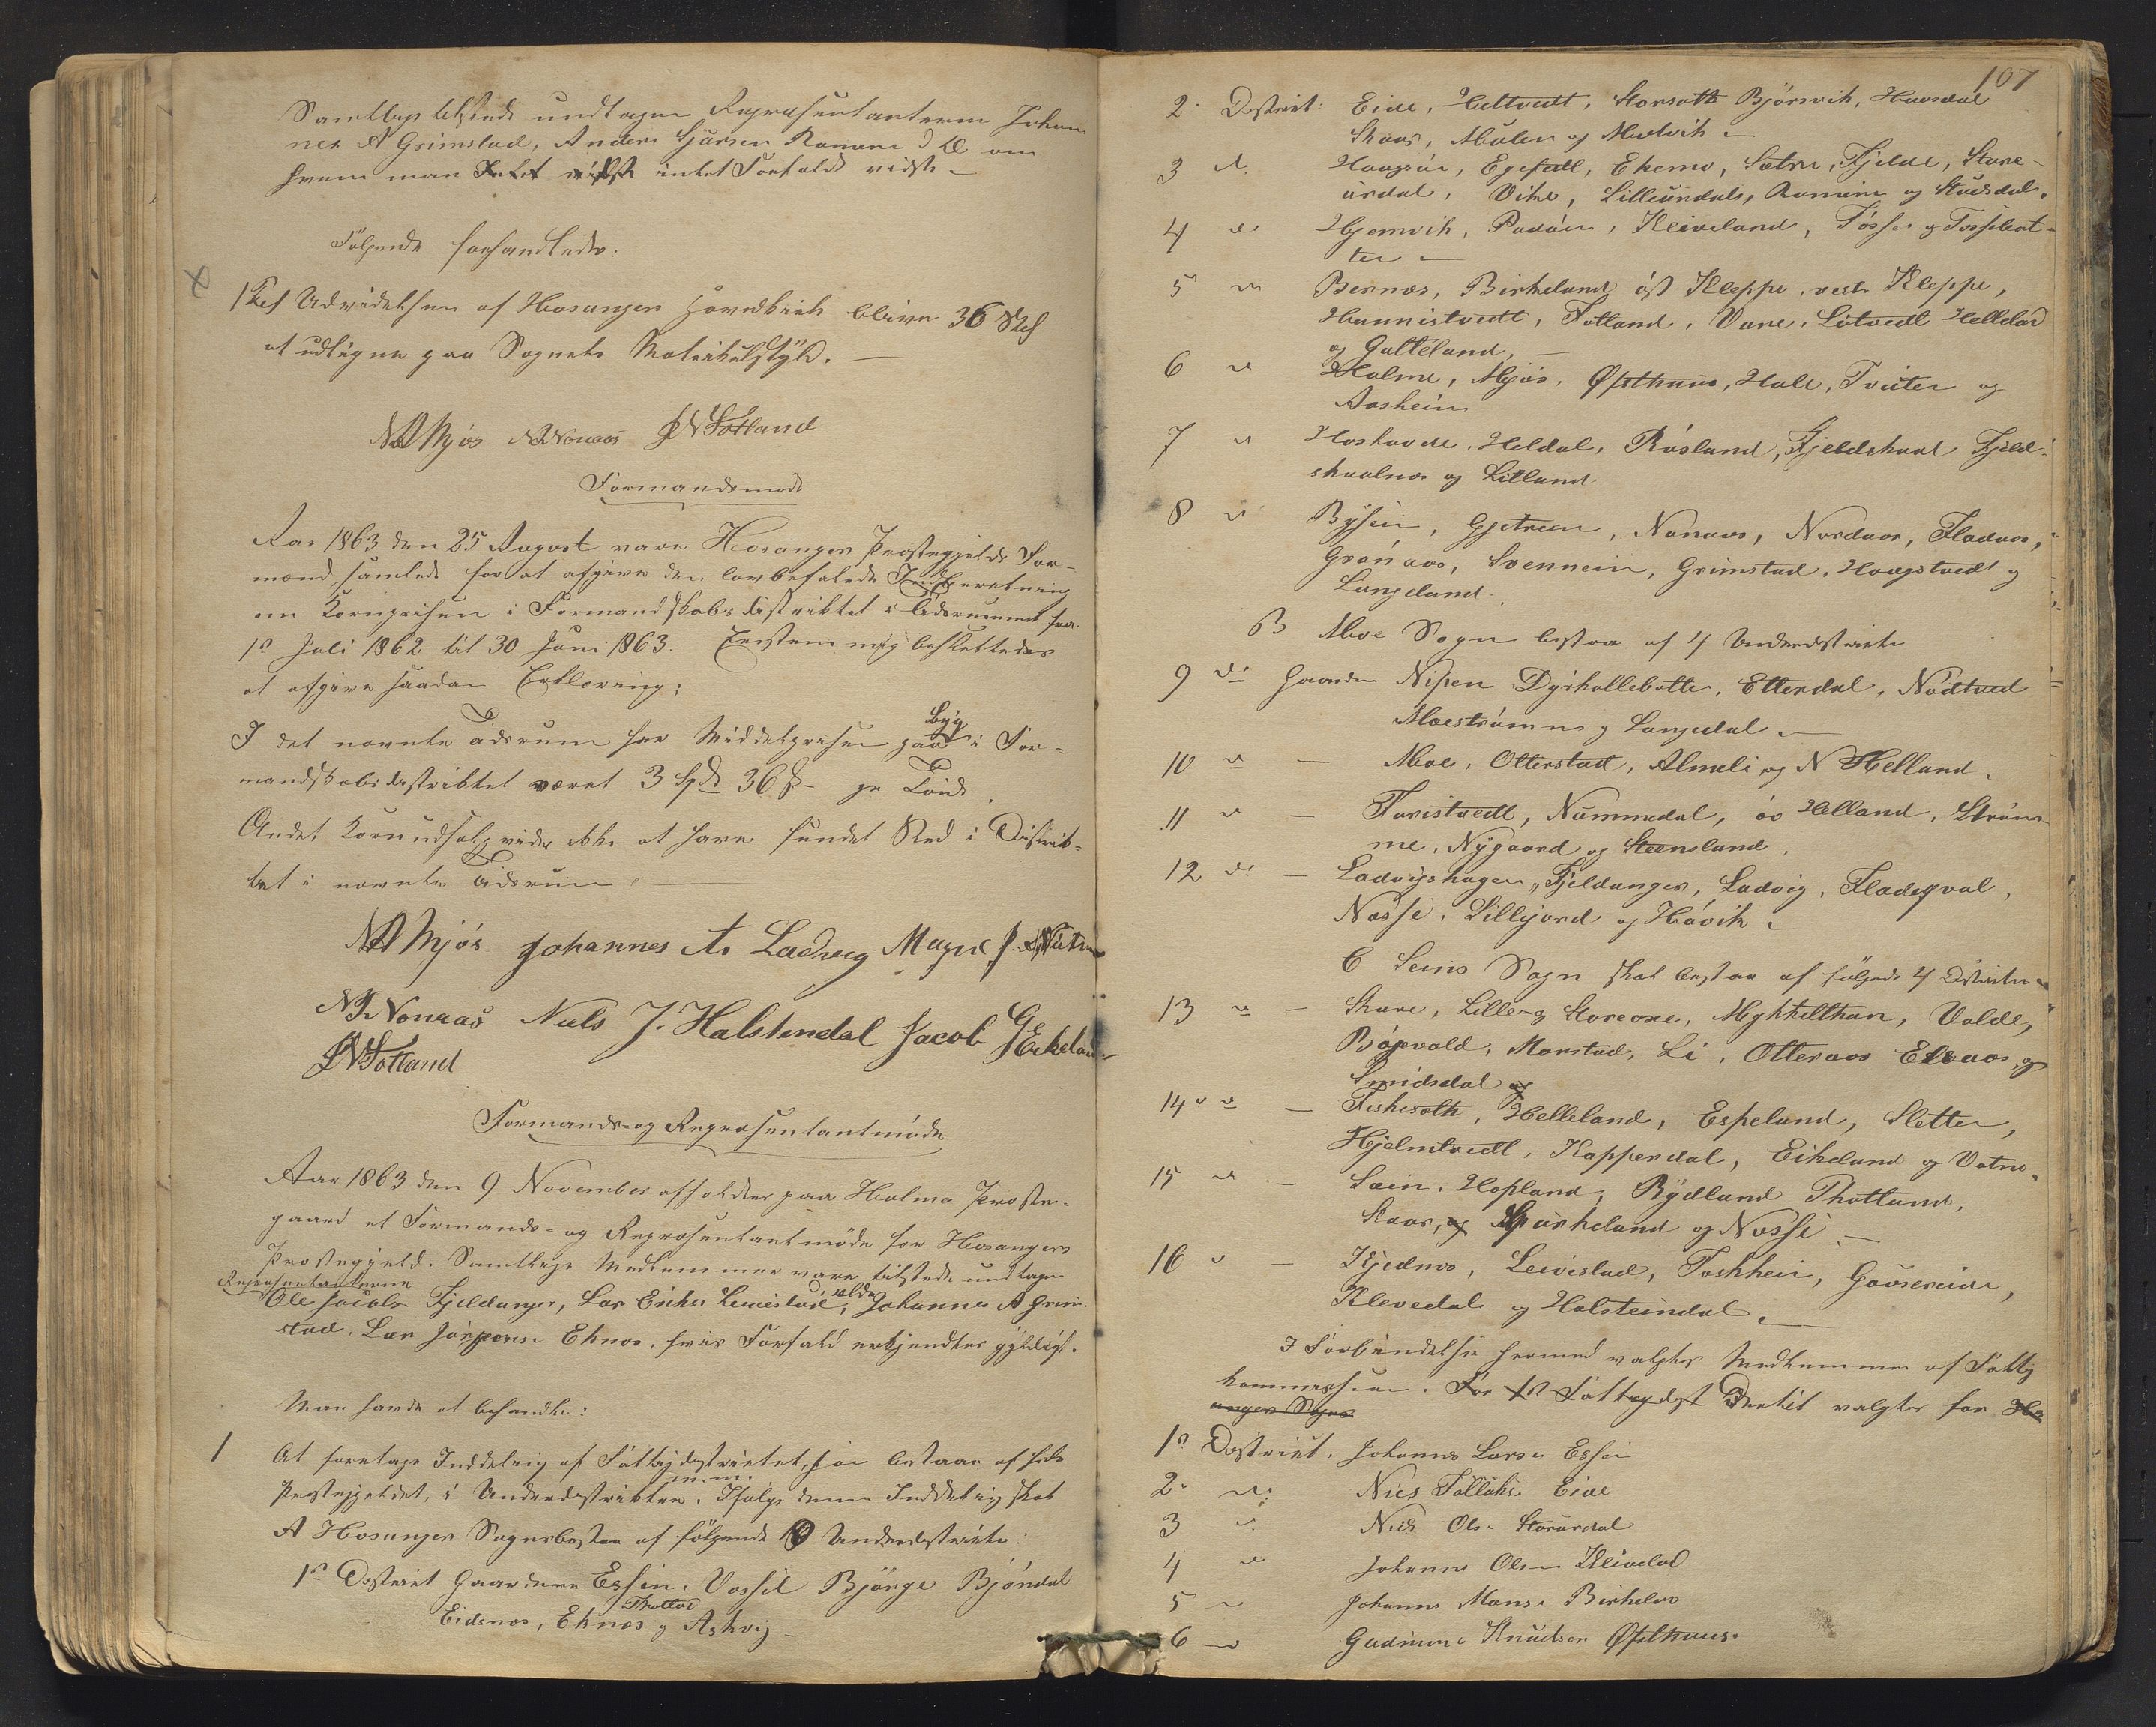 Samtlige tilstede undtagen Repræsentanterne Johan-
nes A Grimstad, Anders Sjursen Romme om
hvem man intet Forfald vidste
Følgende forhandledes:
1 Udvidelsen af Hosangers blive 36
at udligne paa Sognets Matrikulskyld. —
NA Mjøs NJNonaas JNTotland
Formandsmøde
Aar 1863 den 25 August vare Hosangers Præstegjelds For-
mænd samlede for at afgive den lovbefalede Indberetning
om Kornprisen i Formandskabsdistriktet i Tidsrummet fra
1ste Juli 1862 til 30 Juni 1863. Eenstemmig besluttedes
at afgive saadan Erklæring:
I det nævnte Tidsrum har Middelprisen paa Byg i For-
mandskabsdistriktet været 3 Spd 36 ß pr Tønde.
Andet Kornudsalg vides ikke at have fundet Sted i Distrik-
tet i nævnte Tidsrum. —
NA Mjøs Johannes As Ladvig Magne
NJNonaas Niels J. Halstendal Jacob G Eikeland
JNTotland
Formands- og Repræsentantmøde
Aar 1863 den 9 November afholdtes paa Holme Præste-
gaard et Formands- og Repræsentantmøde for Hosangers
Præstegjeld. Samtlige Medlemmer vare tilstede undtagen
Repræsentanterne
Ole Jacobs Fjeldanger, Lars Eriks Leivestad, Johannes A Grim-
stad, Lars Jørgense Eknæs, hvis Forfald erkjendtes gyldigt.
Man havde at behandle:
1 At foretage Inddeling af Fattigdistriktet, som bestaar af hele
Præstegjeldet, i Underdistrikter m.m. Ifølge denne Inddeling skal
A Hosanger Sogn bestaa af følgende 8 Underdistrikter:
1ste District Gaardene Essein, Vossil Bjørge Bjøndal
Eidsnæs, Eknæs Thotlad og Askvig —
107
2. District: Eide, Heltvedt, Storsæth Bjørsvik, Hausdal
Skaar, Mulen og Mælvik —
3 do. Haugsøen, Egefedt, Ekemo, Sætre, Fjelde, Store-
urdal, Vike, Lilleurdal, Romeim og Stusdal.
4 do Hjemvik, Padøen, Kleiveland, Fosse og Fosseslæt-
ter —
5 do Bernæs, Birkeland øst Kleppe, vest Kleppe,
Hunnistvedt, Totland, Vare, Litvedt Helldal
og Galteland, —
6 do Holme, Mjøs, Øpsthuus, Hole, Tveiten og
Aasheim
7 do Hoshovde, Heldal, Røsland, Fjeldskaal Fjeld-
skaalnæs og Litland
8 do Bysein, Gjetreen, Nonaas, Nordaas, Fladaas,
Grønaas, Svennein, Grimstad, Haugstvedt og
Langeland.
B Moe Sogn bestaar af 4 Underdistrikter
9 do Gaarden Nipen Dyrhollebotten, Etterdal, Nødtved
Moestrømmen og Langedal. —
10 do — Moe, Otterstad, Almeli og N Helland.
11 do — Toristvedt, Nømmedal, øv Helland, Strøm-
me, Nygaard og Steensland.
12 do — Ladvigshagen, Fjeldanger, Ladvig, Fladeqval,
Næsse, Lillejord og Haavik.
C Seims Sogn skal bestaa af følgende 4 Distrikter
13 do — Skare, Lille og Storeoxe, Mykkeltthun, Valde,
Børvold, Marstad, Li, Otteraas Elsaas, og
Smidsdal
14 do — Fiskesæth, Helleland, Espeland, Sletten,
Hjelmtvedt, Kopperdal, Eikeland og Vatne.
15 do — Seim, Hopland, Rydland Thotland,
Skaar, og Spurkeland og Næsse —
16 do — Kjednæs, Leivestad, Toskhei, Gaasereide,
Klevedal og Halsteindal. —
I Forbindelse hermed valgtes Medlemmer af Fattig-
kommissionen. For Dertil valgtes for
angers Sogn
1ste District. Johannes Larsen Essein
2. do. Niels Eide
3 do. Niels Ols. Storurdal
4 do Johannes Olsen Kleiveland
5 do Johannes Monsen Birkeland
6 do Gudmund Knudsen Øpsthuus.